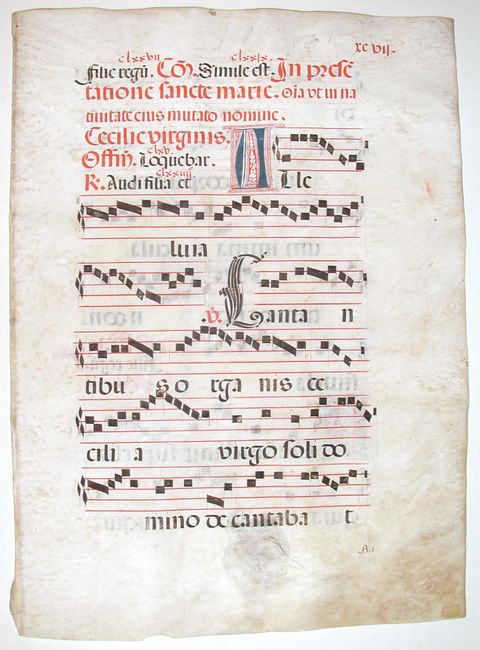 xc vij.
clxxvij clxxix.
Filie regū. Cō. Simile est. In presē
tatione sancte marie. Oīa vt in na
tiuitate eius mutato nomine.
Cecilie virginis.
Offm̄. Loquebar. clxv.
R. Audi filia et clxxiiij A Lle
luia
℣. Canta n
tibu s o rga nis ce
cili a virgo soli do
mino de cantaba t
A.i